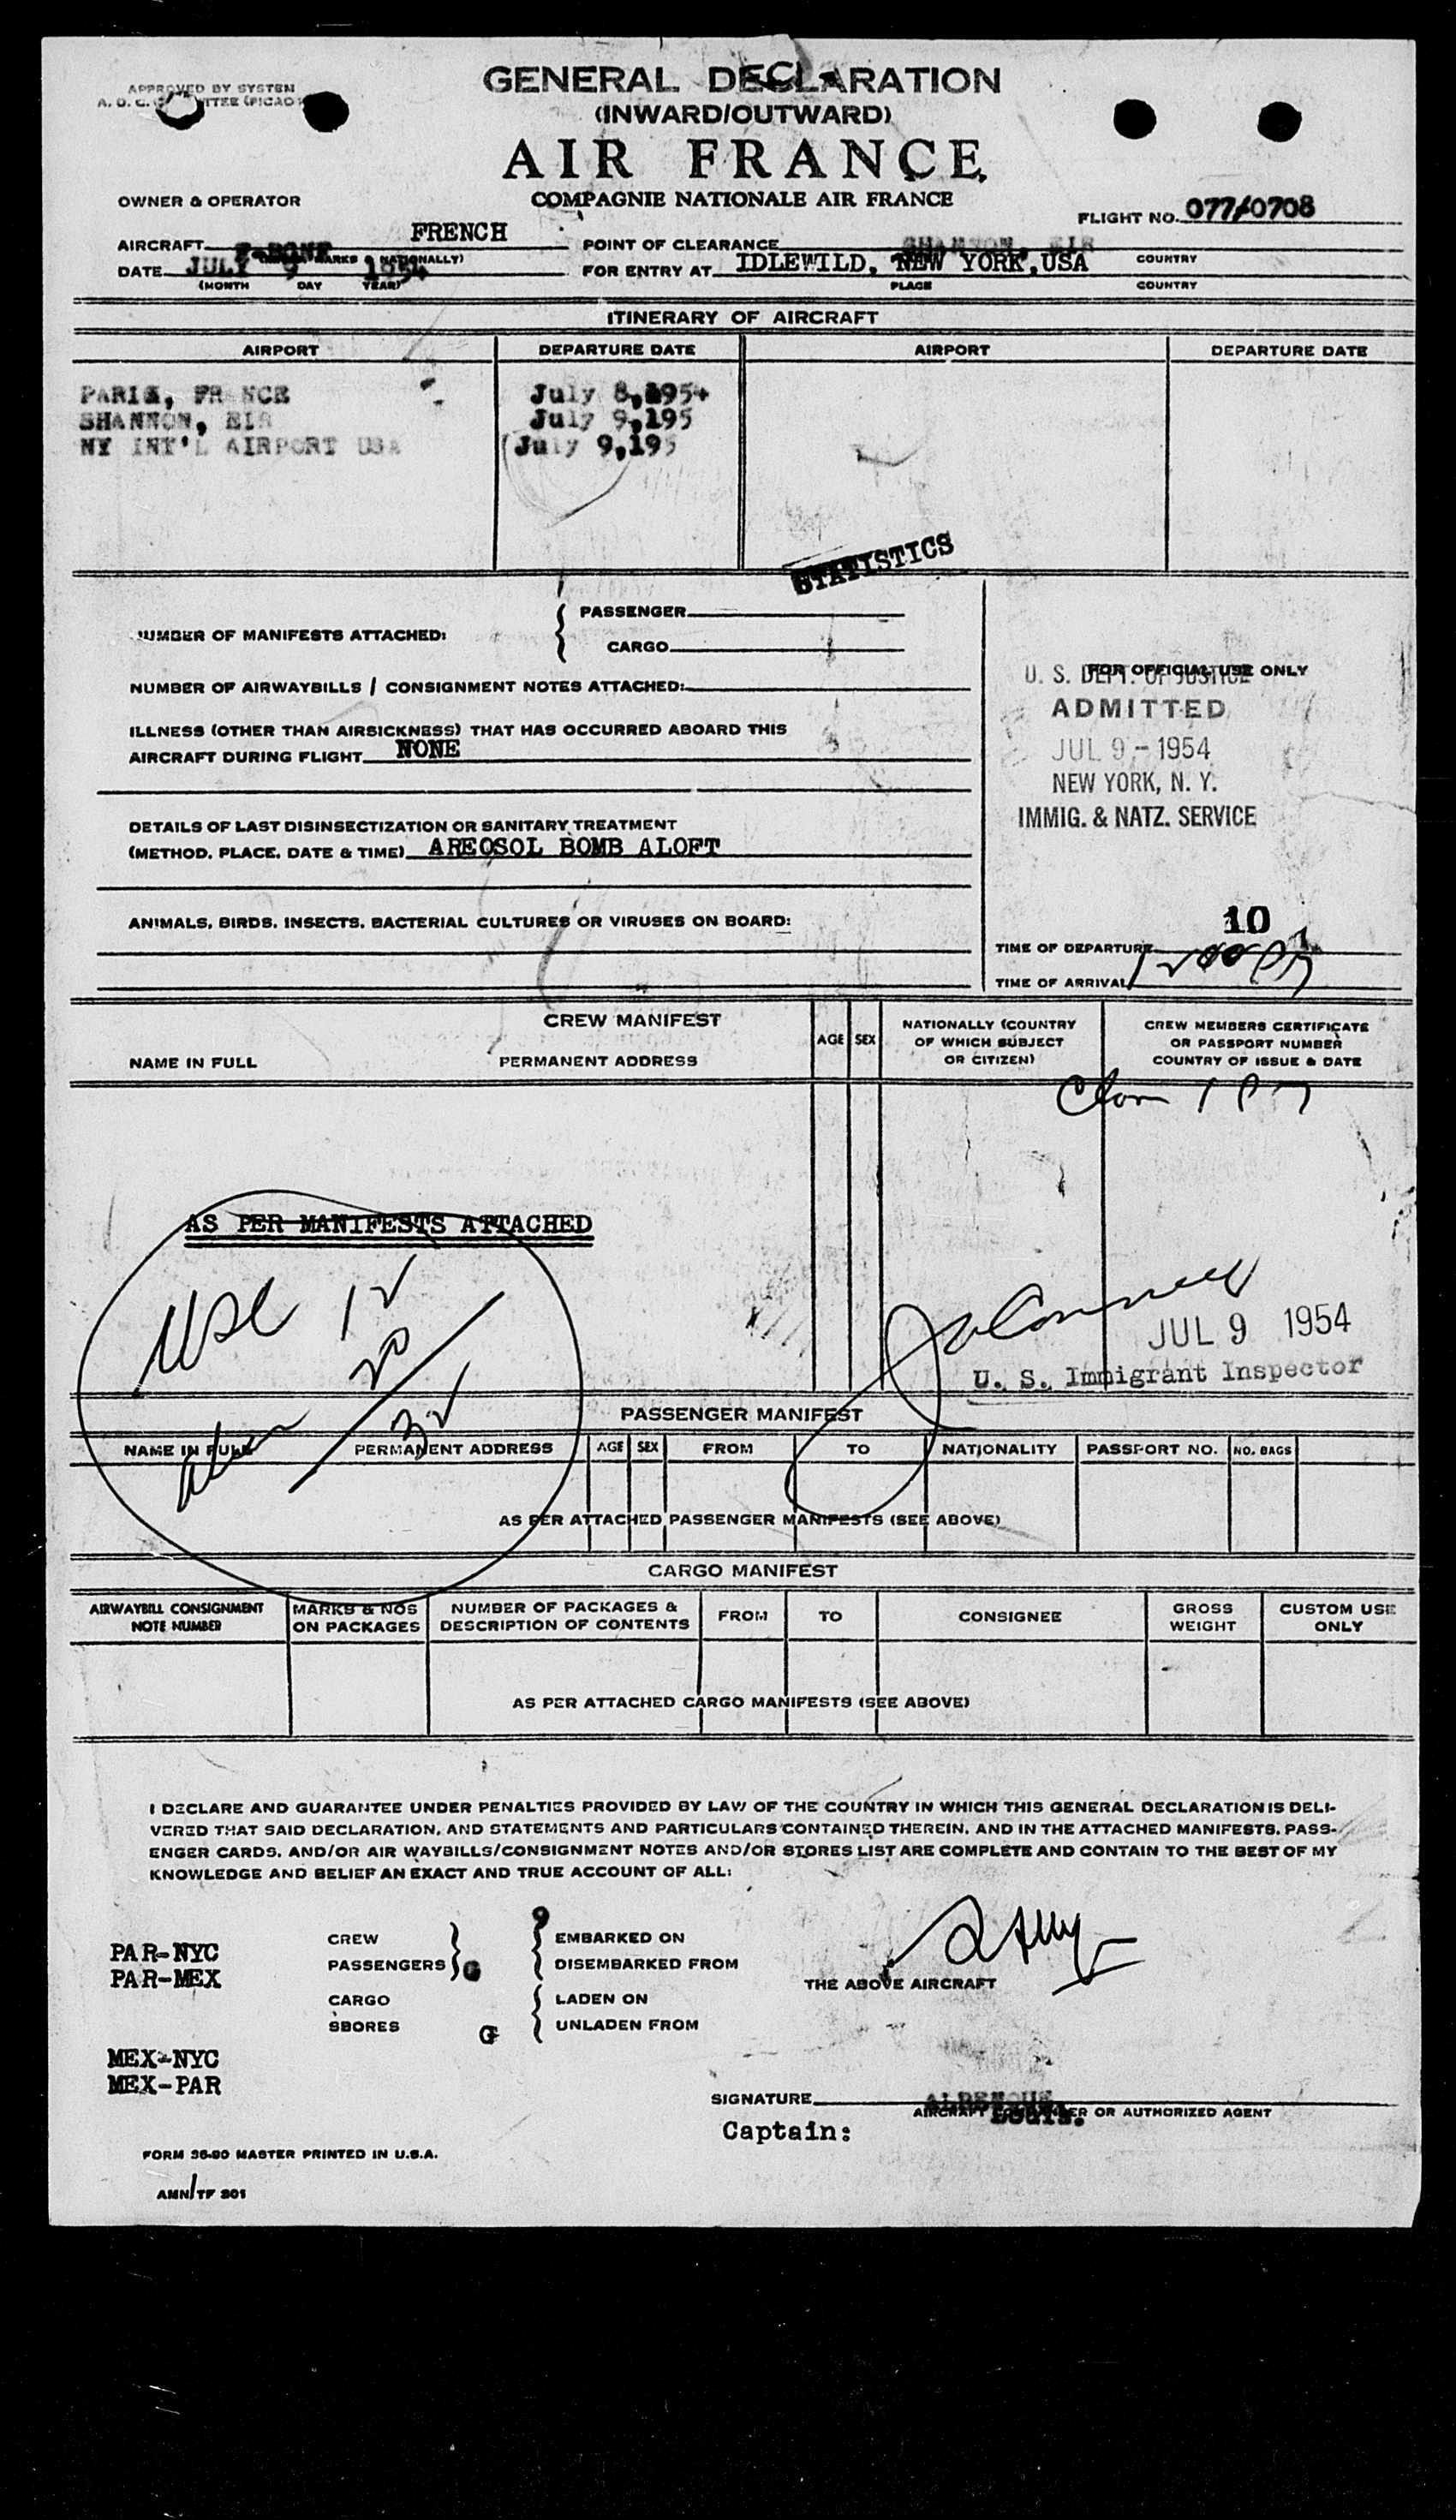 APPROVED BY SYSTEM
GENERAL DECLARATION
(INWARD/OUTWARD)
AIR FRANCE
COMPAGNIE NATIONALE AIR FRANCE
OWNER & OPERATOR
FLIGHT NO. 077/0708
AIRCRAFT FRENCH
(MARKS & NATIONALLY)
POINT OF CLEARANCE SHANNON, EIR
COUNTRY
DATE JULY 9 1954
(MONTH DAY YEAR)
FOR ENTRY AT IDLEWILD, NEW YORK, USA
PLACE COUNTRY
ITINERARY OF AIRCRAFT
AIRPORT DEPARTURE DATE AIRPORT DEPARTURE DATE
PARIS, FRANCE July 8,1954
SHANNON, EIR July 9,195
NY INT'L AIRPORT USA July 9,195
STATISTICS
NUMBER OF MANIFESTS ATTACHED: PASSENGER
CARGO
NUMBER OF AIRWAYBILLS / CONSIGNMENT NOTES ATTACHED:
ILLNESS (OTHER THAN AIRSICKNESS) THAT HAS OCCURRED ABOARD THIS
AIRCRAFT DURING FLIGHT NONE
DETAILS OF LAST DISINSECTIZATION OR SANITARY TREATMENT
(METHOD. PLACE. DATE & TIME) AREOSOL BOMB ALOFT
ANIMALS, BIRDS, INSECTS, BACTERIAL CULTURES OR VIRUSES ON BOARD:
FOR OFFICIAL USE ONLY
U. S. DEPT. OF JUSTICE
ADMITTED
JUL 9 - 1954
NEW YORK, N. Y.
IMMIG. & NATZ. SERVICE
10
TIME OF DEPARTURE
TIME OF ARRIVAL
CREW MANIFEST
NAME IN FULL PERMANENT ADDRESS AGE SEX
NATIONALLY (COUNTRY
OF WHICH SUBJECT
OR CITIZEN)
CREW MEMBERS CERTIFICATE
OR PASSPORT NUMBER
COUNTRY OF ISSUE & DATE
AS PER MANIFESTS ATTACHED
USC 12
20
Alien 32
JUL 9 1954
U. S. Immigrant Inspector
PASSENGER MANIFEST
NAME IN FULL PERMANENT ADDRESS AGE SEX FROM TO NATIONALITY PASSPORT NO. NO. BAGS
AS PER ATTACHED PASSENGER MANIFESTS (SEE ABOVE)
CARGO MANIFEST
AIRWAYBILL CONSIGNMENT
NOTE NUMBER
MARKS & NOS
ON PACKAGES
NUMBER OF PACKAGES &
DESCRIPTION OF CONTENTS
FROM TO CONSIGNEE
GROSS
WEIGHT
CUSTOM USE
ONLY
AS PER ATTACHED CARGO MANIFESTS (SEE ABOVE)
I DECLARE AND GUARANTEE UNDER PENALTIES PROVIDED BY LAW OF THE COUNTRY IN WHICH THIS GENERAL DECLARATION IS DELI-
VERED THAT SAID DECLARATION, AND STATEMENTS AND PARTICULARS CONTAINED THEREIN. AND IN THE ATTACHED MANIFESTS. PASS-
ENGER CARDS. AND/OR AIR WAYBILLS/CONSIGNMENT NOTES AND/OR STORES LIST ARE COMPLETE AND CONTAIN TO THE BEST OF MY
KNOWLEDGE AND BELIEF AN EXACT AND TRUE ACCOUNT OF ALL:
9
PAR-NYC CREW EMBARKED ON
PAR-MEX PASSENGERS G DISEMBARKED FROM
THE ABOVE AIRCRAFT
CARGO LADEN ON
SBORES G UNLADEN FROM
MEX-NYC
MEX-PAR
SIGNATURE
AIRCRAFT COMMANDER OR AUTHORIZED AGENT
Louis.
Captain:
FORM 36-90 MASTER PRINTED IN U.S.A.
AMN/TF 301